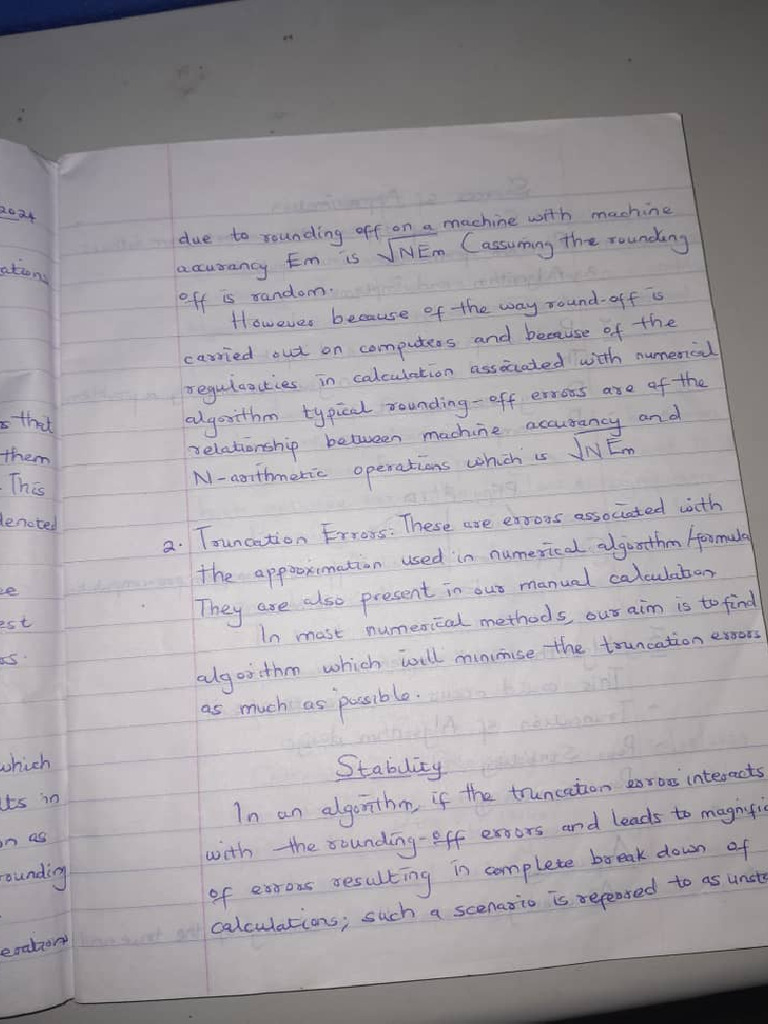 2024
ations
s that
them
. This
denoted
e
est
s.
which
lts in
on as
rounding
eration
due to rounding off on a machine with machine
accurancy Em is √NEm (assuming the rounding
off is random.
However because of the way round-off is
carried out on computers and because of the
regularities in calculation associated with numerical
algorithm typical rounding-off errors are of the
relationship between machine accurancy and
N-arithmetic operations which is √NEm
2. Truncation Errors: These are errors associated with
the approximation used in numerical algorithm/formula
They are also present in our manual calculation
In most numerical methods, our aim is to find
algorithm which will minimise the truncation errors
as much as possible.
Stability
In an algorithm, if the truncation error interacts
with the rounding-off errors and leads to magnific
of errors resulting in complete break down of
calculations; such a scenario is referred to as unsta